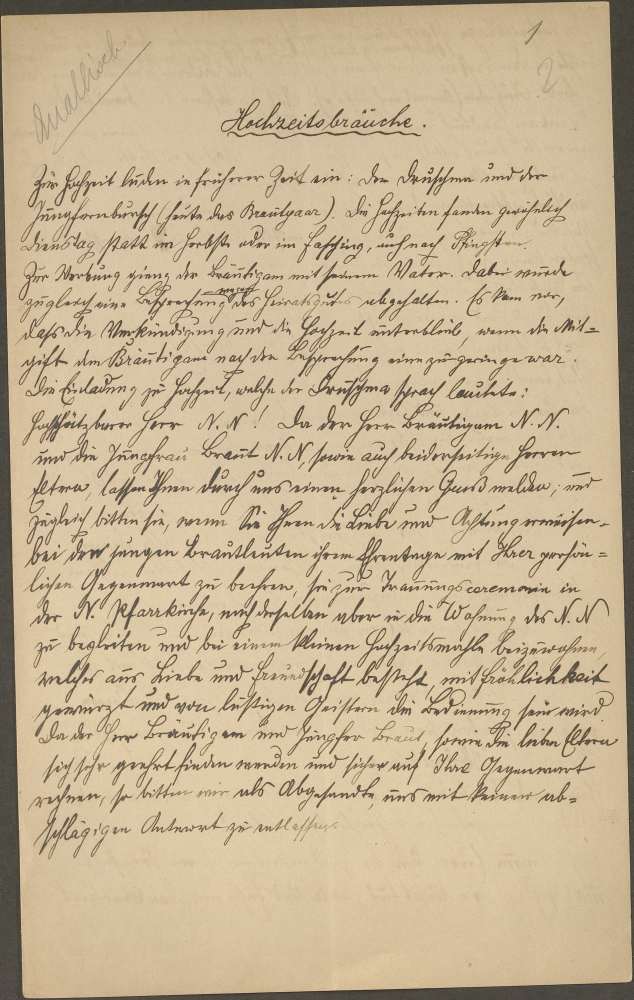 1
2
Hochzeitsbräuche.
Zur Hochzeit luden in früherer Zeit ein: Der Druschma und der
Jungfernbursch (heute das Brautpaar). Die Hochzeiten fanden gewöhnlich
Dienstag statt im Herbste oder im Fasching, auch nach Pfingsten.
Zur Werbung gieng der Bräutigam mit seinem Vater. Dabei wurde
zugleich eine Besprechung wegen des Heiratsgutes abgehalten. Es kam vor,
dass die Verkündigung und die Hochzeit unterblieb, wenn die Mit=
gift dem Bräutigam nach der Besprechung eine zu geringe war.
Die Einladung zur Hochzeit, welche der Druschma sprach lautete:
Hochschätzbarer Herr N. N! Da der Herr Bräutigam N. N.
und die Jungfrau Braut N. N, sowie auch beiderseitige Herren
Eltern, lassen Ihnen durch uns einen herzlichen Gruß melden; und
zugleich bitten sie, wenn Sie Ihnen die Liebe und Achtung erweisen,
bei den jungen Brautleuten ihrem Ehrentage mit Ihrer persön=
lichen Gegenwart zu beehren, sie zur Trauungsceremonie in
der N. Pfarrkirche, nach derselben aber in die Wohnung des N. N
zu begleiten und bei einem kleinen Hochzeitsmahle beizuwohnen,
welches aus Liebe und Freundschaft besteht, mit Fröhlichkeit
gewürzt und von lustigen Geistern die Bedienung sein wird
Da der Herr Bräutigam und Jungfer Braut, sowie die lieben Eltern
sich sehr geehrt finden werden und sicher auf Ihre Gegenwart
rechnen, so bitten wir als Abgesandte, uns mit keiner ab=
schlägigen Antwort zu entlassen.